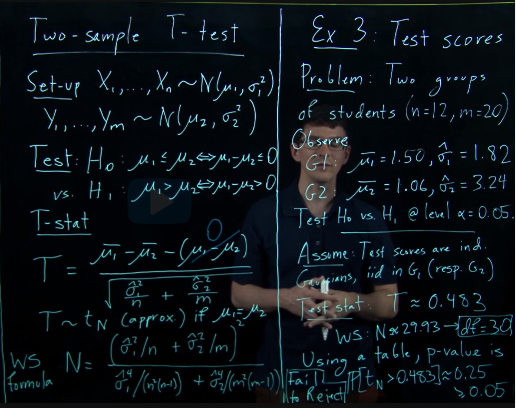 Two-sample T-test
Set-up X₁,...,Xₙ ~ N(μ₁, σ₁²)
Y₁,...,Yₘ ~ N(μ₂, σ₂²)
Test: H₀: μ₁ ≤ μ₂ ⇔ μ₁-μ₂ ≤ 0
vs. H₁: μ₁ > μ₂ ⇔ μ₁-μ₂ > 0
T-stat
0
T = (μ̄₁ - μ̄₂ - (μ₁-μ₂)) / √(σ̂₁²/n + σ̂₂²/m)
T ~ t_N (approx.) if μ₁=μ₂
WS formula N = (σ̂₁²/n + σ̂₂²/m) / (σ̂₁⁴/(n²(n-1)) + σ̂₂⁴/(m²(m-1)))
Ex 3: Test scores
Problem: Two groups
of students (n=12, m=20)
Observe
G1: μ̄₁ = 1.50, σ̂₁² = 1.82
G2: μ̄₂ = 1.06, σ̂₂² = 3.24
Test H₀ vs. H₁ @ level α = 0.05.
Assume: Test scores are ind.
Gaussians, iid in G₁ (resp. G₂)
Test stat: T ≈ 0.483
WS: N ≈ 29.93 → df=30,
Using a table, p-value is
Fail to Reject P[t_N > 0.483] ≈ 0.25
> 0.05